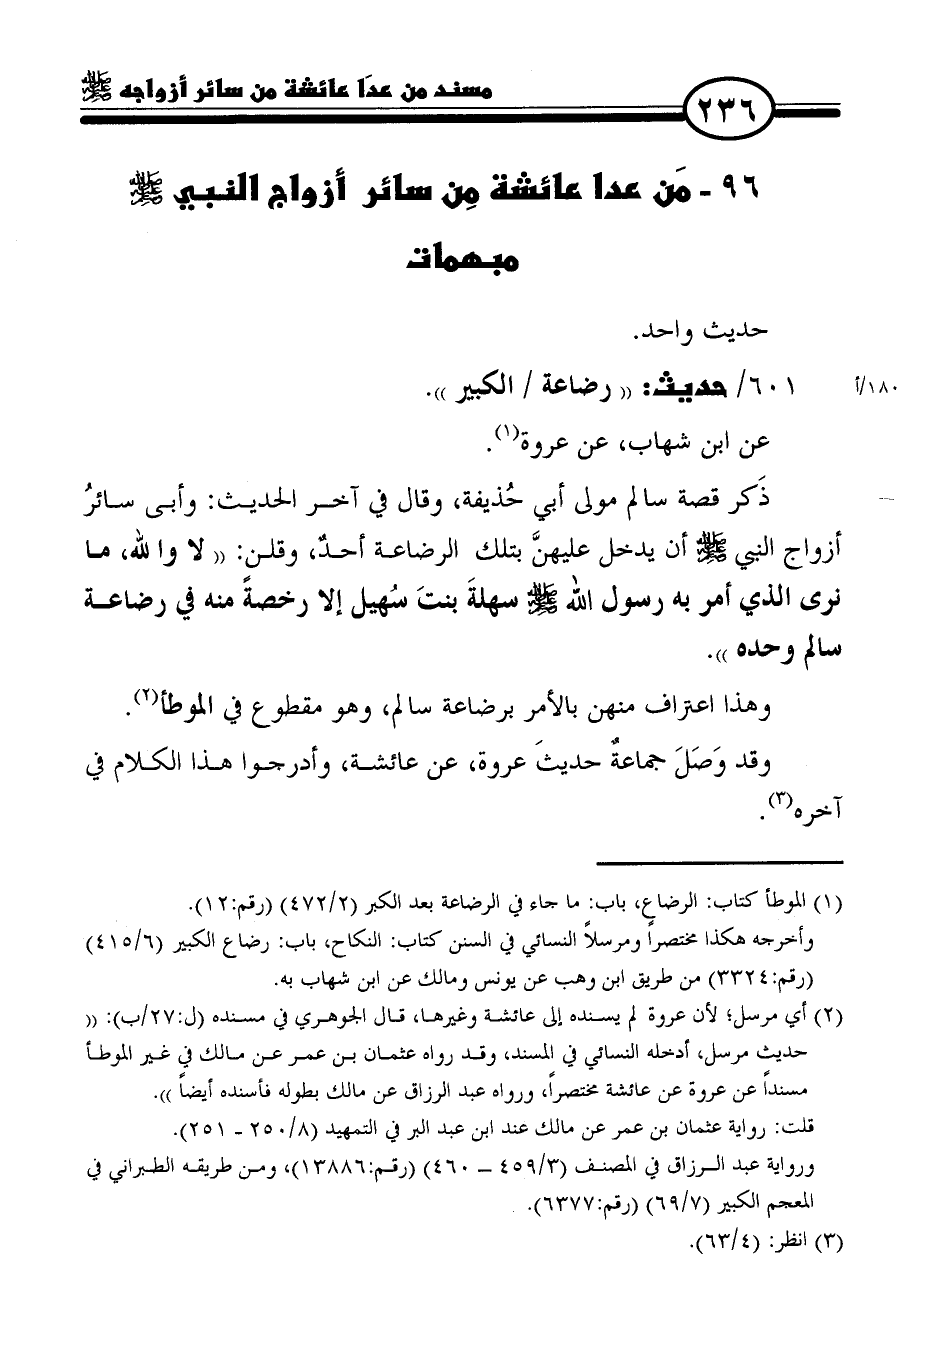 مسند من عدَا عائشة من سائر أزواجه ﷺ
٢٣٦
٩٦ - مَن عدا عائشة مِن سائر أزواج النبي ﷺ
مبهمات
حديث واحد.
٦٠١/ حديث: « رضاعة / الكبير ».
١٨٠/أ
عن ابن شهاب، عن عروة(١).
ذَكر قصة سالم مولى أبي حُذيفة، وقال في آخر الحديث: وأبى سائرُ
أزواج النبي ﷺ أن يدخل عليهنَّ بتلك الرضاعة أحدٌ، وقلن: « لا والله، ما
نرى الذي أمر به رسول الله ﷺ سهلةَ بنتَ سُهيل إلا رخصةً منه في رضاعة
سالم وحده ».
وهذا اعتراف منهن بالأمر برضاعة سالم، وهو مقطوع في الموطأ(٢).
وقد وَصَلَ جماعةٌ حديثَ عروة، عن عائشة، وأدرجوا هذا الكلام في
آخره(٣).
(١) الموطأ كتاب: الرضاع، باب: ما جاء في الرضاعة بعد الكبر (٤٧٢/٢) (رقم:١٢).
وأخرجه هكذا مختصراً ومرسلاً النسائي في السنن كتاب: النكاح، باب: رضاع الكبير (٤١٥/٦)
(رقم:٣٣٢٤) من طريق ابن وهب عن يونس ومالك عن ابن شهاب به.
(٢) أي مرسل؛ لأن عروة لم يسنده إلى عائشة وغيرها، قال الجوهري في مسنده (ل:٢٧/ب): «
حديث مرسل، أدخله النسائي في المسند، وقد رواه عثمان بن عمر عن مالك في غير الموطأ
مسنداً عن عروة عن عائشة مختصراً، ورواه عبد الرزاق عن مالك بطوله فأسنده أيضاً ».
قلت: رواية عثمان بن عمر عن مالك عند ابن عبد البر في التمهيد (٢٥٠/٨ - ٢٥١).
ورواية عبد الرزاق في المصنف (٤٥٩/٣ – ٤٦٠) (رقم:١٣٨٨٦)، ومن طريقه الطبراني في
المعجم الكبير (٦٩/٧) (رقم:٦٣٧٧).
(٣) انظر: (٦٣/٤).